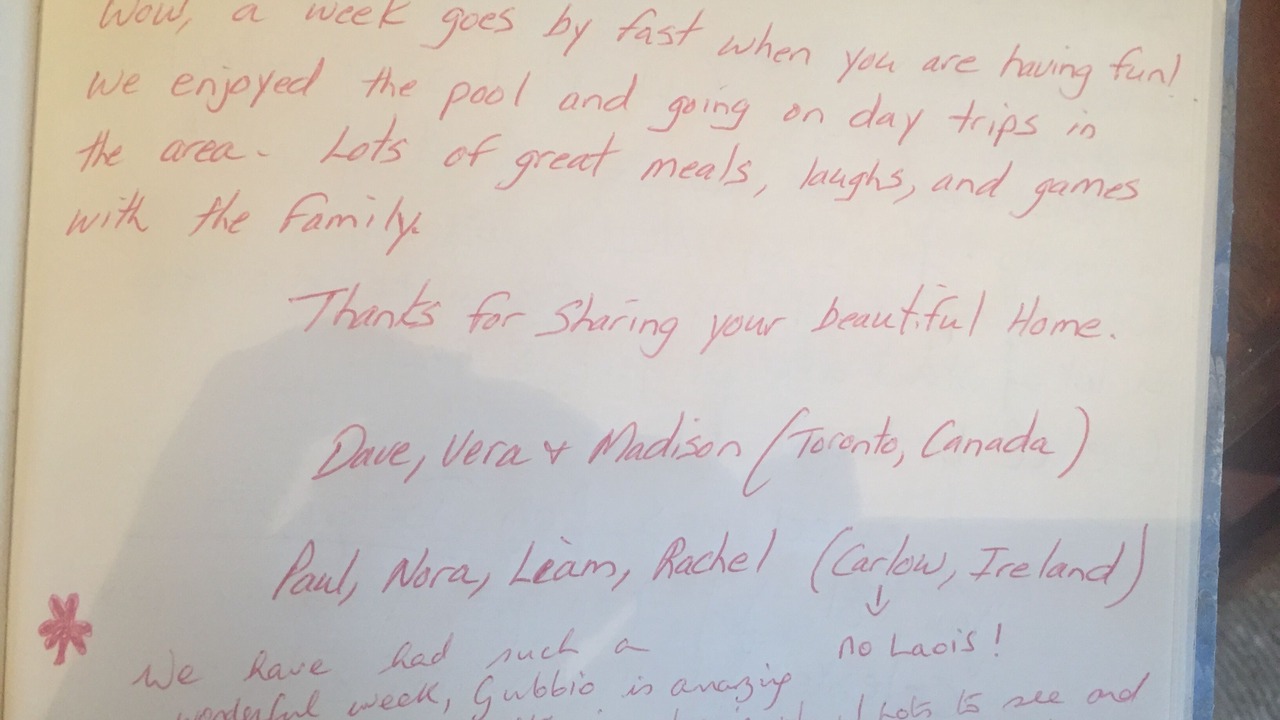 Wow, a week goes by fast when you are having fun!
We enjoyed the pool and going on day trips in
the area. Lots of great meals, laughs, and games
with the family.
Thanks for sharing your beautiful Home.
Dave, Vera + Madison (Toronto, Canada)
Paul, Nora, Liam, Rachel (Carlow, Ireland)
↓
no Laois!
We have had such a
wonderful week, Gubbio is amazing
Lots to see and